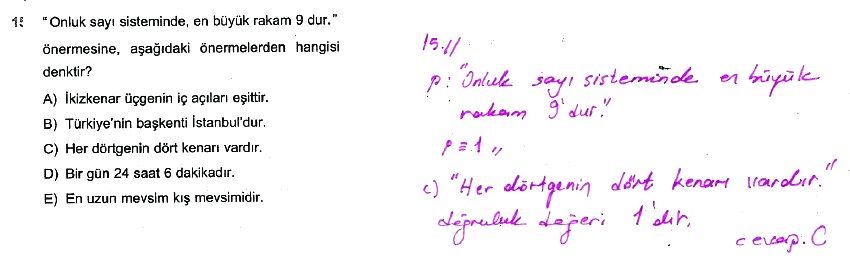 15 "Onluk sayı sisteminde, en büyük rakam 9 dur."
önermesine, aşağıdaki önermelerden hangisi
denktir?
A) İkizkenar üçgenin iç açıları eşittir.
B) Türkiye'nin başkenti İstanbul'dur.
C) Her dörtgenin dört kenarı vardır.
D) Bir gün 24 saat 6 dakikadır.
E) En uzun mevsim kış mevsimidir.
15.//
p: "Onluk sayı sisteminde en büyük
rakam 9'dur."
p ≡ 1 //
c) "Her dörtgenin dört kenarı vardır."
doğruluk değeri 1'dir.
cevap. C